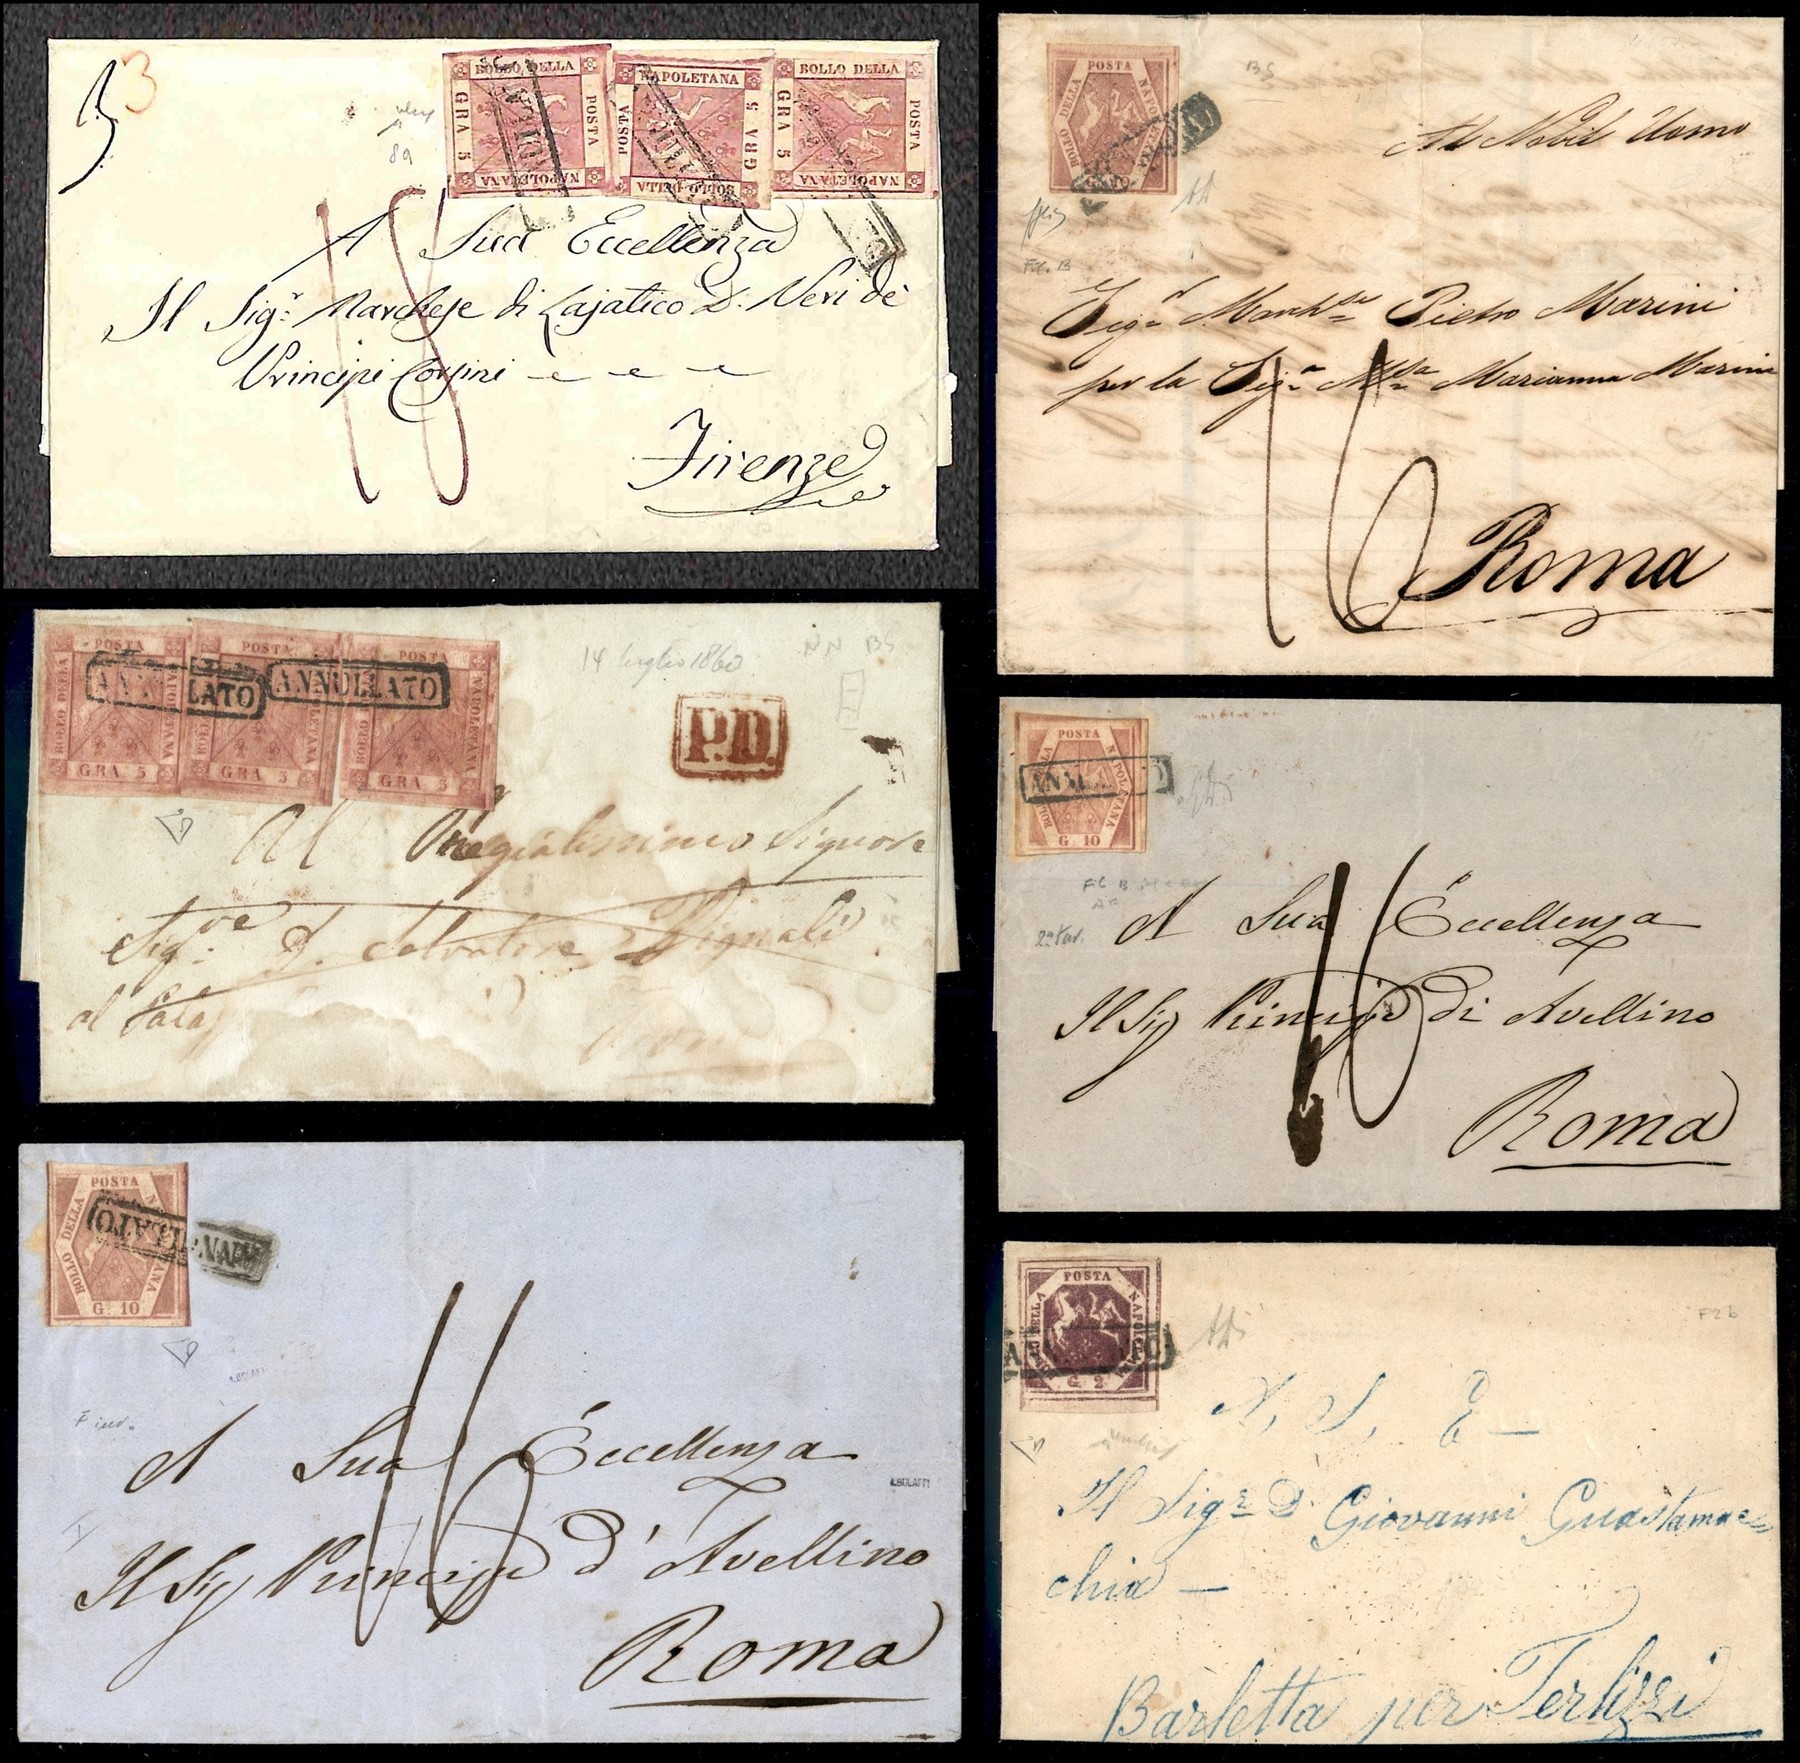 3
3
BOLLO DELLA
POSTA
NAPOLETANA
GRA 5
NAPOLETANA
POSTA
GRA 5
BOLLO DELLA
BOLLO DELLA
POSTA
NAPOLETANA
GRA 5
89
A Sua Eccellenza
Il Sigr. Marchese di Lajatico D. Neri de'
Principi Corsini
Firenze
POSTA
BOLLO DELLA
BS
Al Nobil Uomo
Sigr Pietro Marini
per la Siga Marianna Marini
16
Roma
POSTA
BOLLO DELLA
NAPOLETANA
GRA 5
POSTA
NAPOLETANA
GRA 5
NAPOLETANA
GRA 5
ANNULLATO
ANNULLATO
14 luglio 1860
NN BS
P.D.
Al Pregiatissimo Signore
Sigre D. Salvatore
al
POSTA
BOLLO DELLA
NAPOLETANA
G. 10
A Sua Eccellenza
Il Sig Principe di Avellino
Roma
POSTA
BOLLO DELLA
G. 10
ANNULLATO
A.BOLAFFI
A Sua Eccellenza
A.BOLAFFI
Il Sig Principe d'Avellino
Roma
POSTA
BOLLO DELLA
NAPOLETANA
G. 2
F2b
A, S, E
Il Sigr D. Giovanni Guastamac=
chia
Barletta per Terlizzi